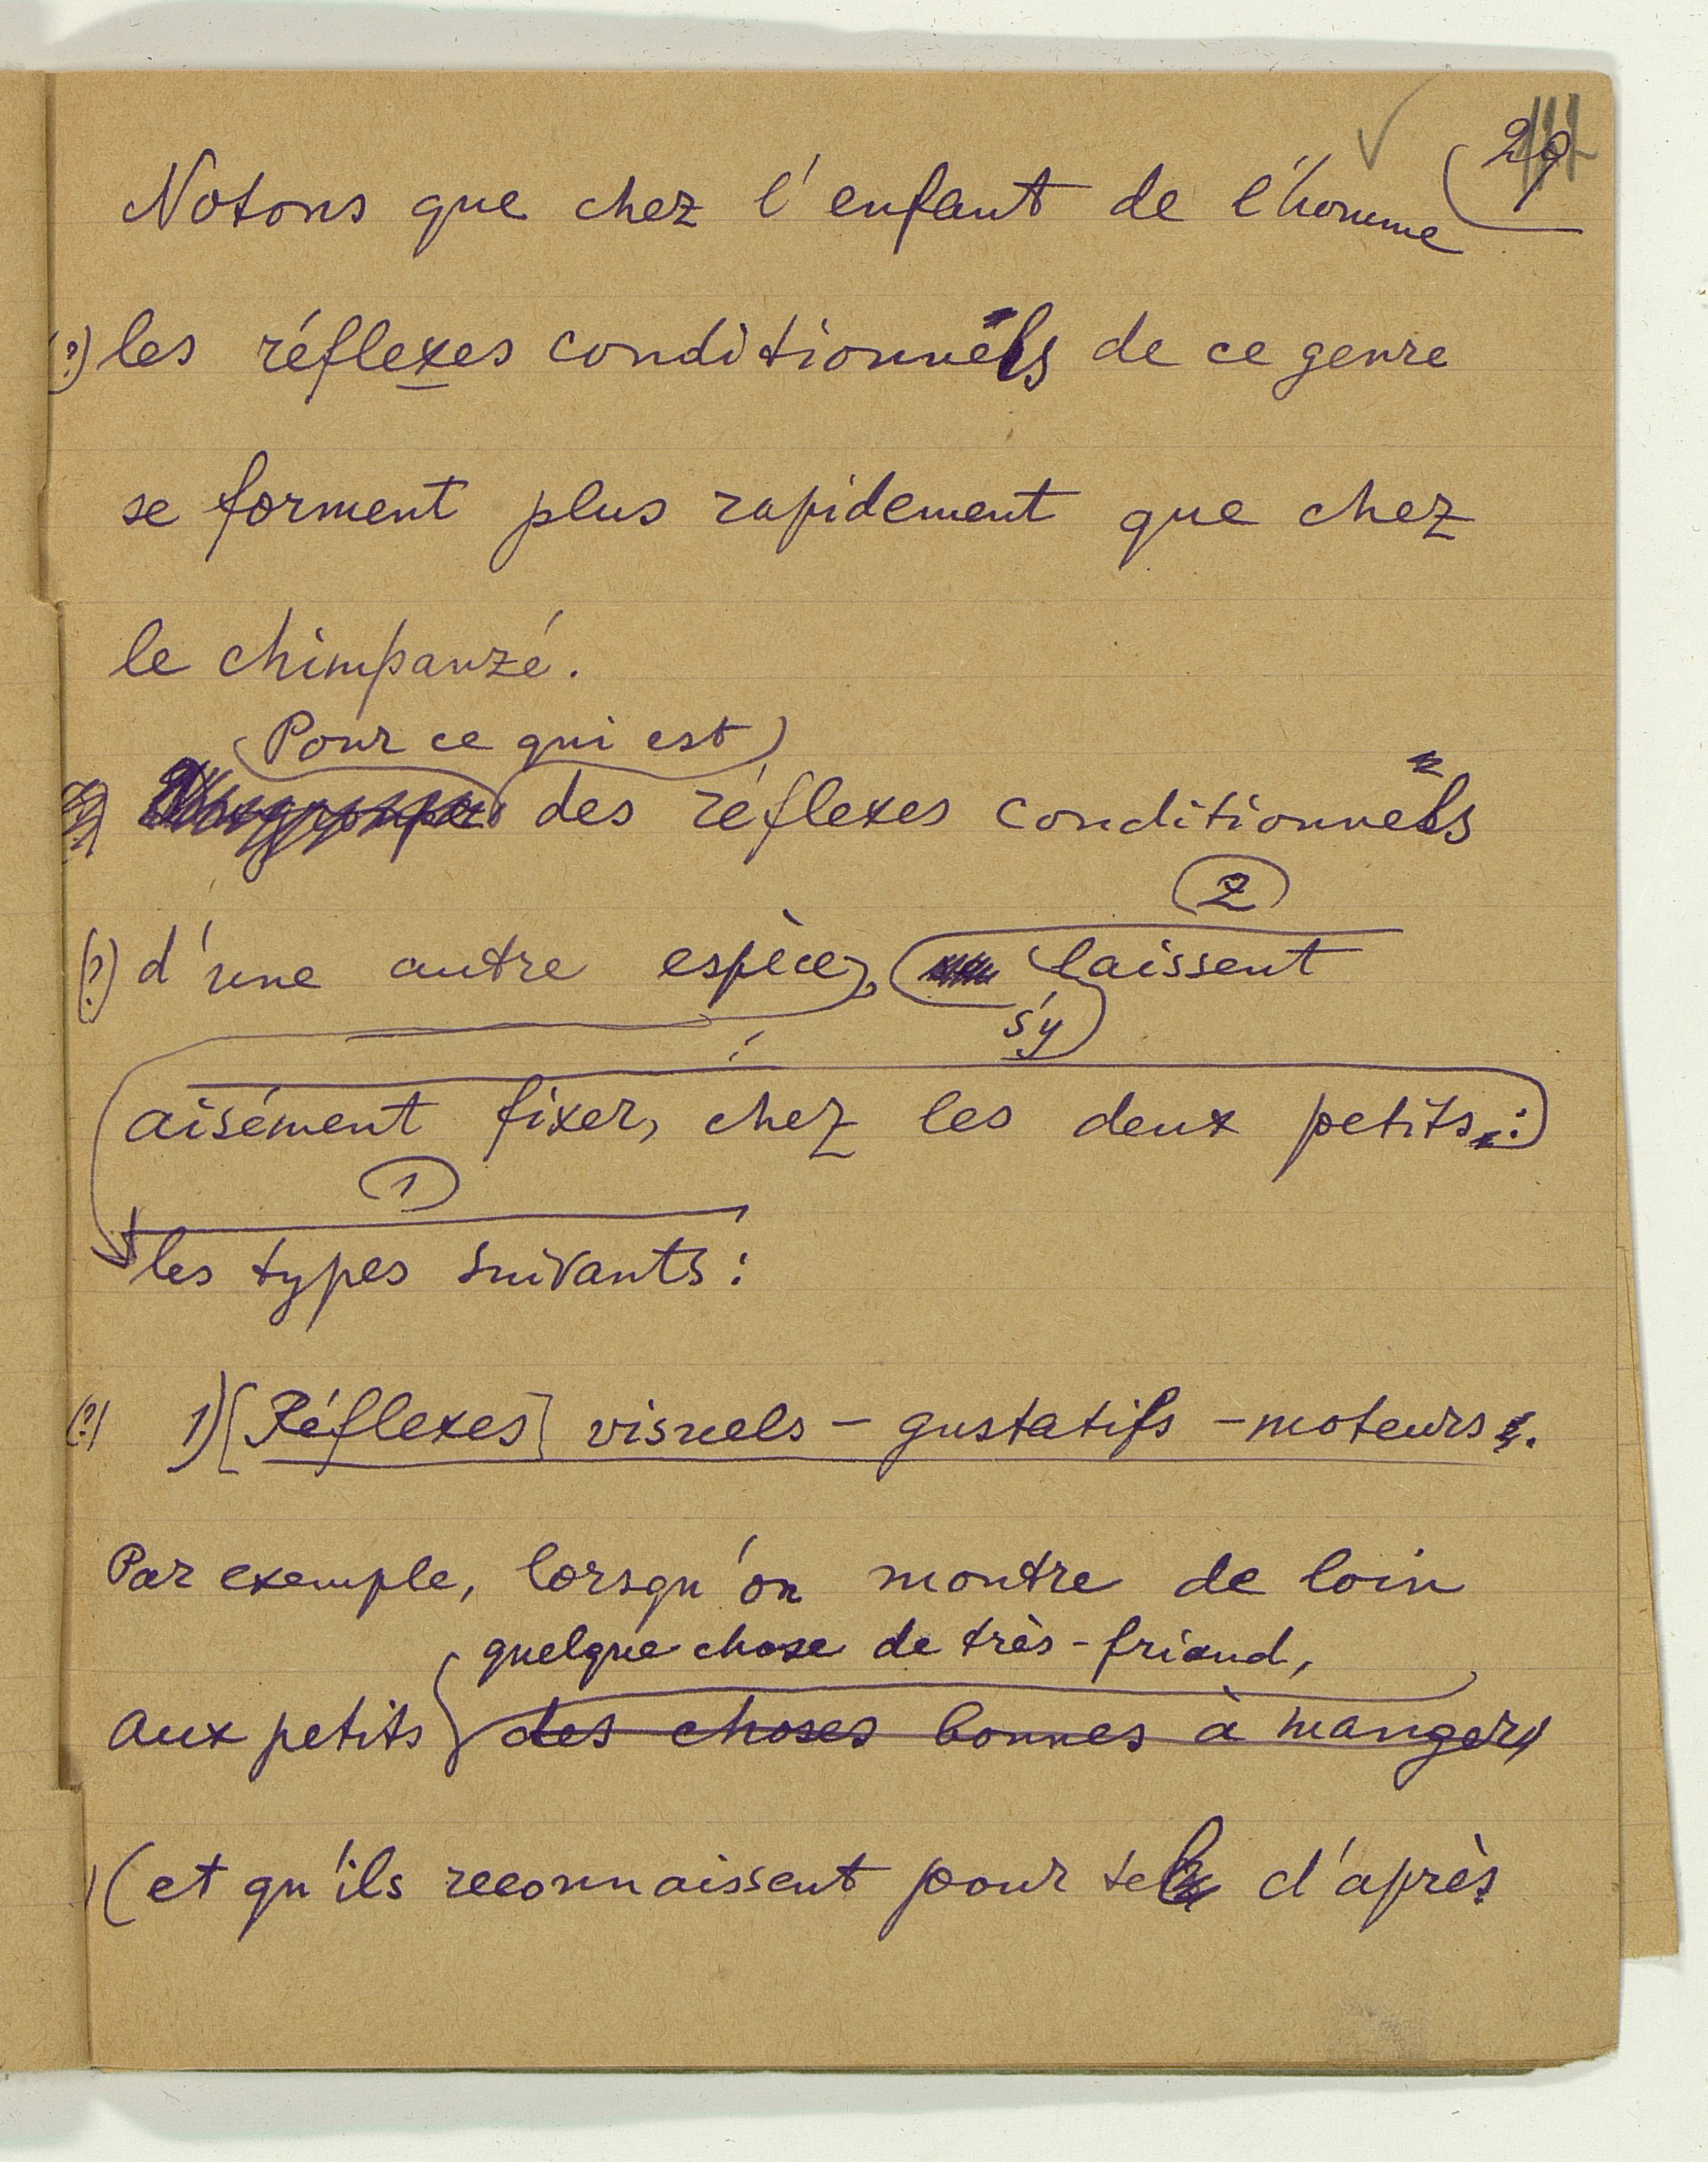 29
Notons que chez l'enfant de l'homme
(?) les réflexes conditionnels de ce genre
se forment plus rapidement que chez
le chimpanzé.
Pour ce qui est
des réflexes conditionnels
(?) d'une autre espèce,
2
laissent
s'y
aisément fixer, chez les deux petits:
1
les types suivants:
(?) 1) [Réflexes] visuels - gustatifs - moteurs.
Par exemple, lorsqu'on montre de loin
quelque chose de très-friand,
aux petits des choses bonnes à manger,
(et qu'ils reconnaissent pour tel d'après